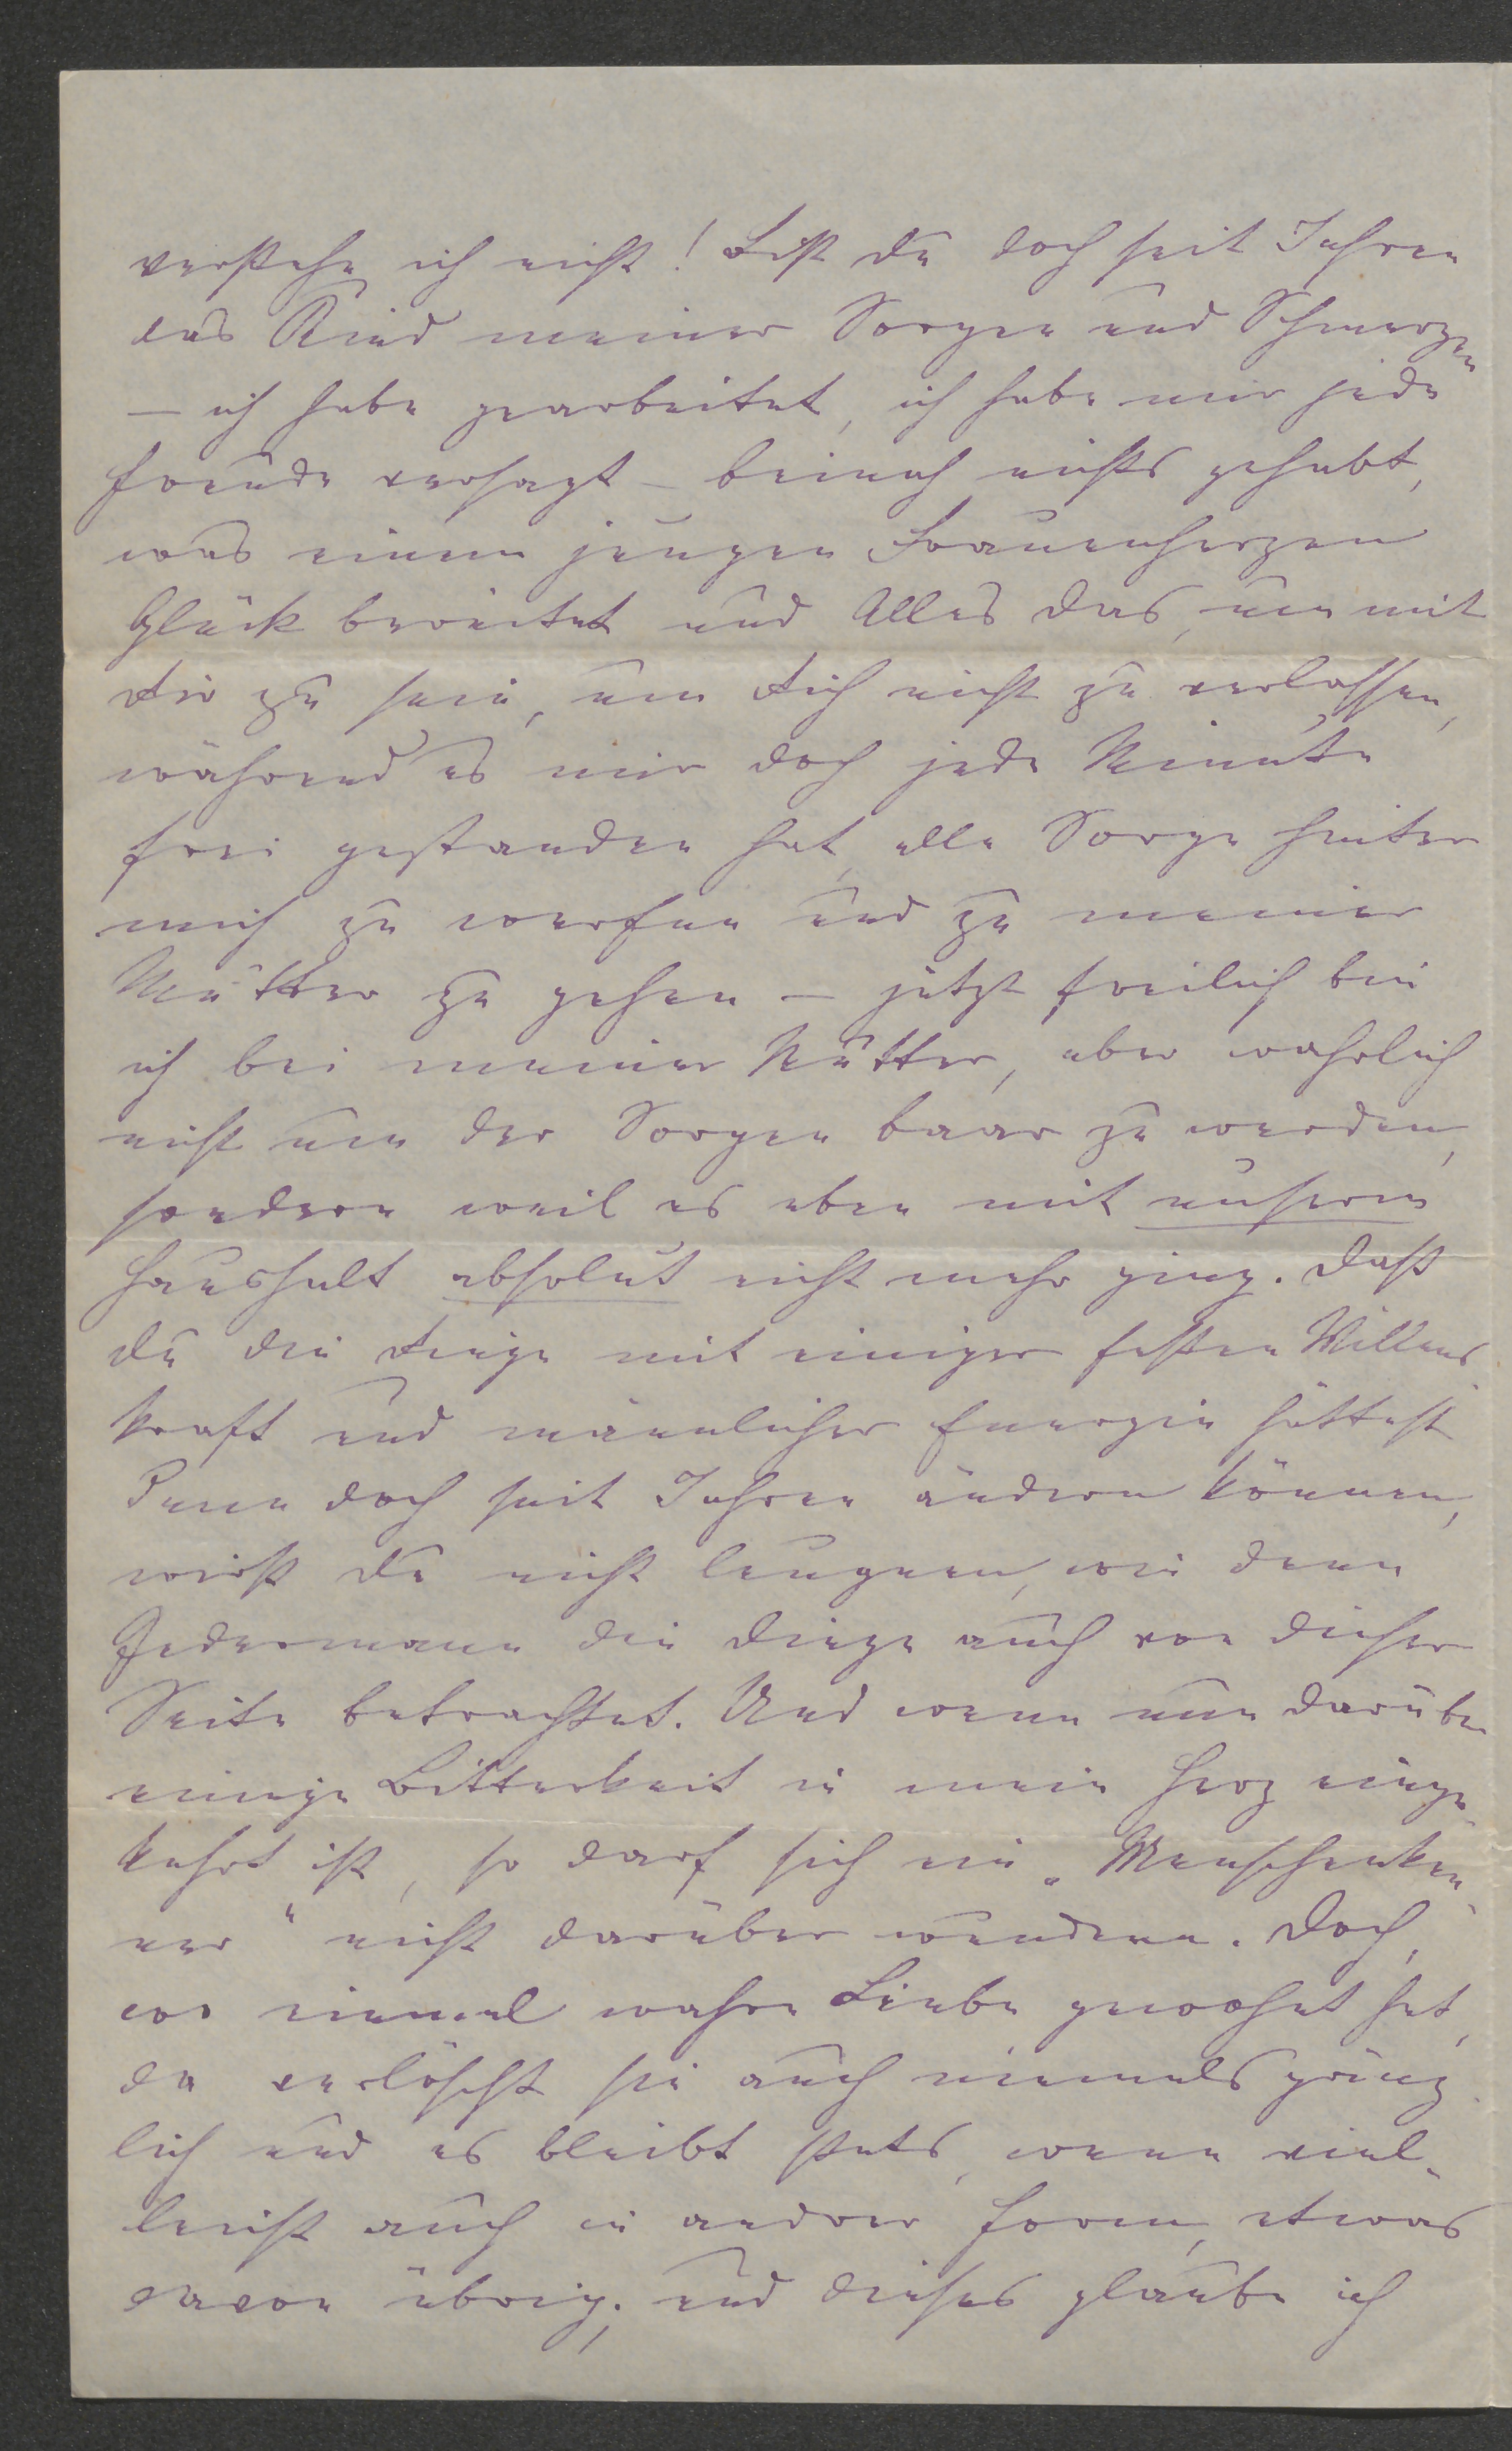 verstehe ich nicht! Bist du doch seit Jahren
das Kind meiner Sorgen und Schmerzen
— ich habe gearbeitet, ich habe mir jede
Freude versagt – beinah nichts gehabt,
was einem jungen Frauenherzen
Glück bereitet und Alles das, um mit
dir zu sein, um dich nicht zu verlassen,
während es mir doch jede Minute
frei gestanden hat, alle Sorge hinter
mich zu werfen und zu meiner
Mutter zu gehen — jetzt freilich bin
ich bei meiner Mutter, aber wahrlich
nicht um der Sorgen baar zu werden,
sondern weil es eben mit unserm
Haushalt absolut nicht mehr ging. Daß
du die Dinge mit einiger festen Willens
kraft und männlicher Energie hättest
doch seit Jahren ändern können,
wirst du nicht leugnen, wie denn
Jedermann die Dinge auch von dieser
Seite betrachtet. Und wenn nun darüber
einige Bitterkeit in mein Herz einge-
kehrt ist, so darf sich ein „Menschenken-
ner“ nicht darüber wundern. Doch,
wo einmal wahre Liebe gewohnt hat,
da verlöscht sie auch niemals gänz
lich und es bleibt stets, wenn viel-
leicht auch in andrer Form, etwas
davon übrig; und dieses glaube ich